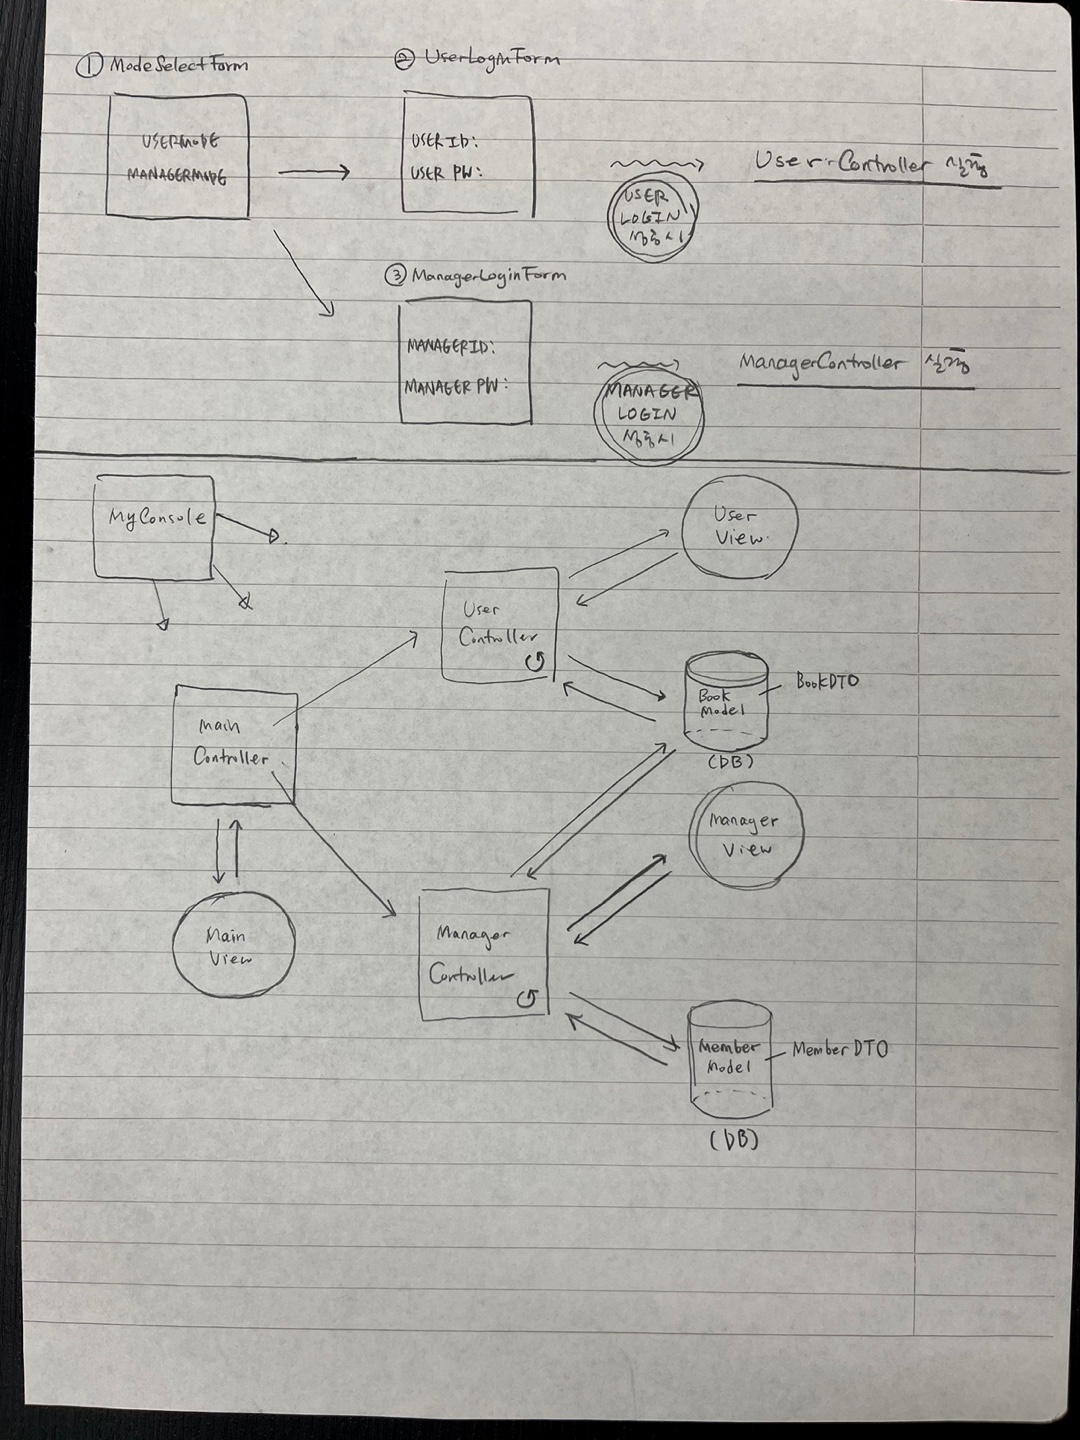 ① ModeSelectForm
USERMODE
MANAGERMODE
② UserLoginForm
USER ID:
USER PW:
USER
LOGIN
성공시
User Controller 실행
③ ManagerLoginForm
MANAGER ID:
MANAGER PW:
MANAGER
LOGIN
성공시
ManagerController 실행
MyConsole
User
View
User
Controller
Book
Model
BookDTO
(DB)
Main
Controller
Manager
View
Main
View
Manager
Controller
Member
Model
Member DTO
(DB)